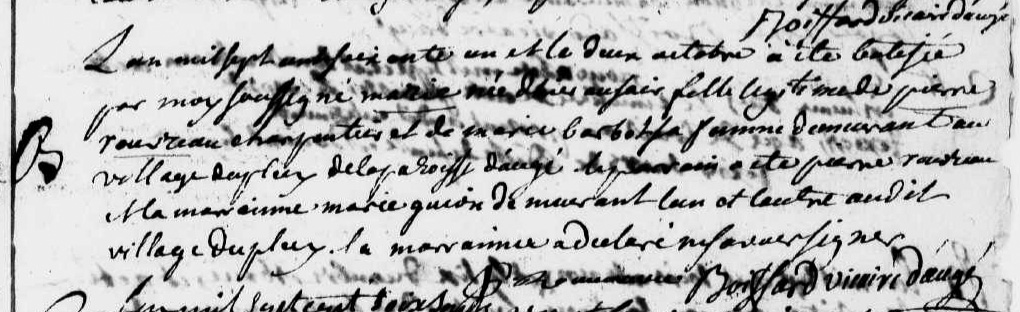 Boiffard vicaire d'augé
L'an mil sept cent soixante un et le deux octobre à été batisée
par moy soussigné marie née d'hier au soir fille legitime de pierre
rouvreau charpentier et de marie barbot sa femme demeurant au
B
village du pleux de la paroisse d'augé. le parrain a ete pierre rouvreau
et la marainne marie guion demeurant lun et lautre audit
village du pleux. la marrainne a declaré ne savoir signer
Boiffard vicaire d'augé
L'an mil sept cent soixante